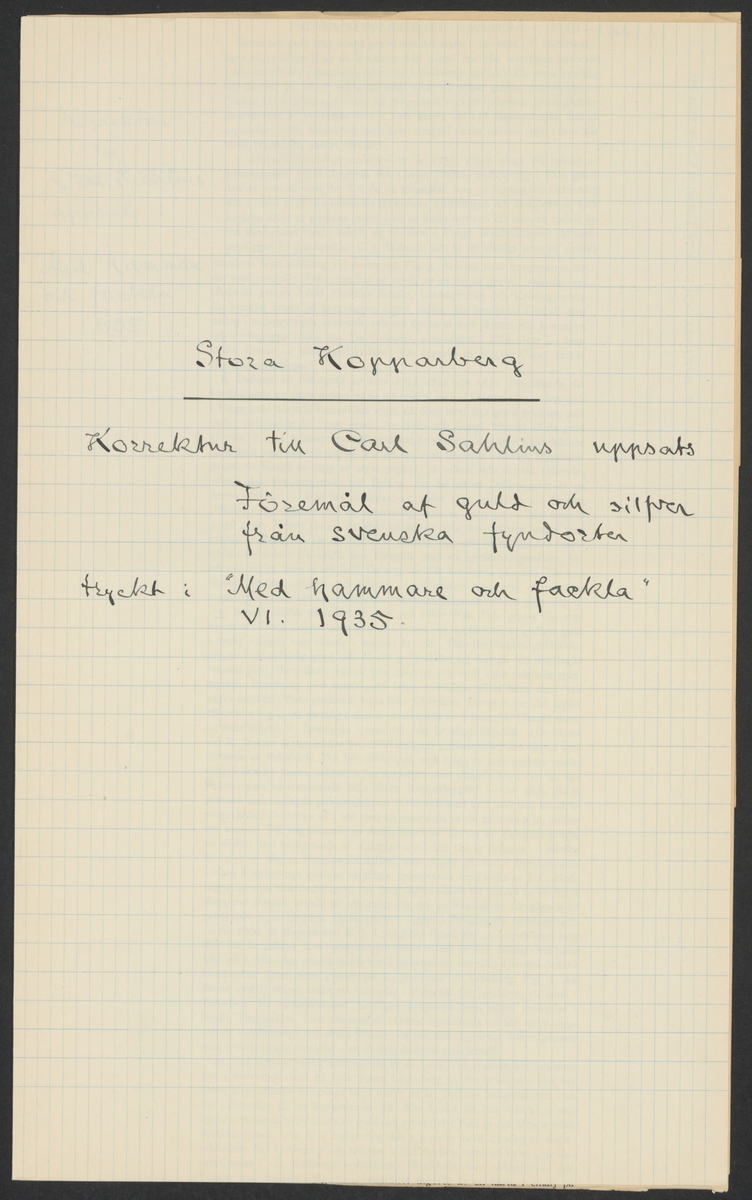 Stora Kopparberg
Korrektur till Carl Sahlins uppsats
Föremål af guld och silfver
från svenska fyndorter
tryckt i "Med hammare och fackla"
VI. 1935.